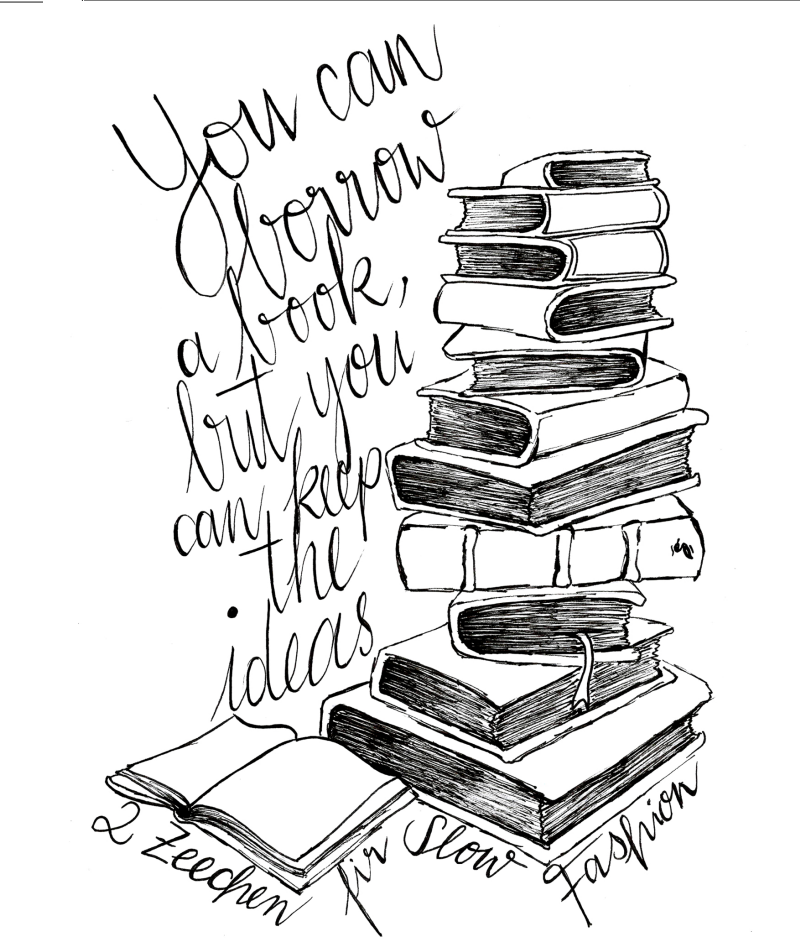 You can
borrow
a book,
but you
can keep
the
ideas
2 Zeechen fir Slow Fashion